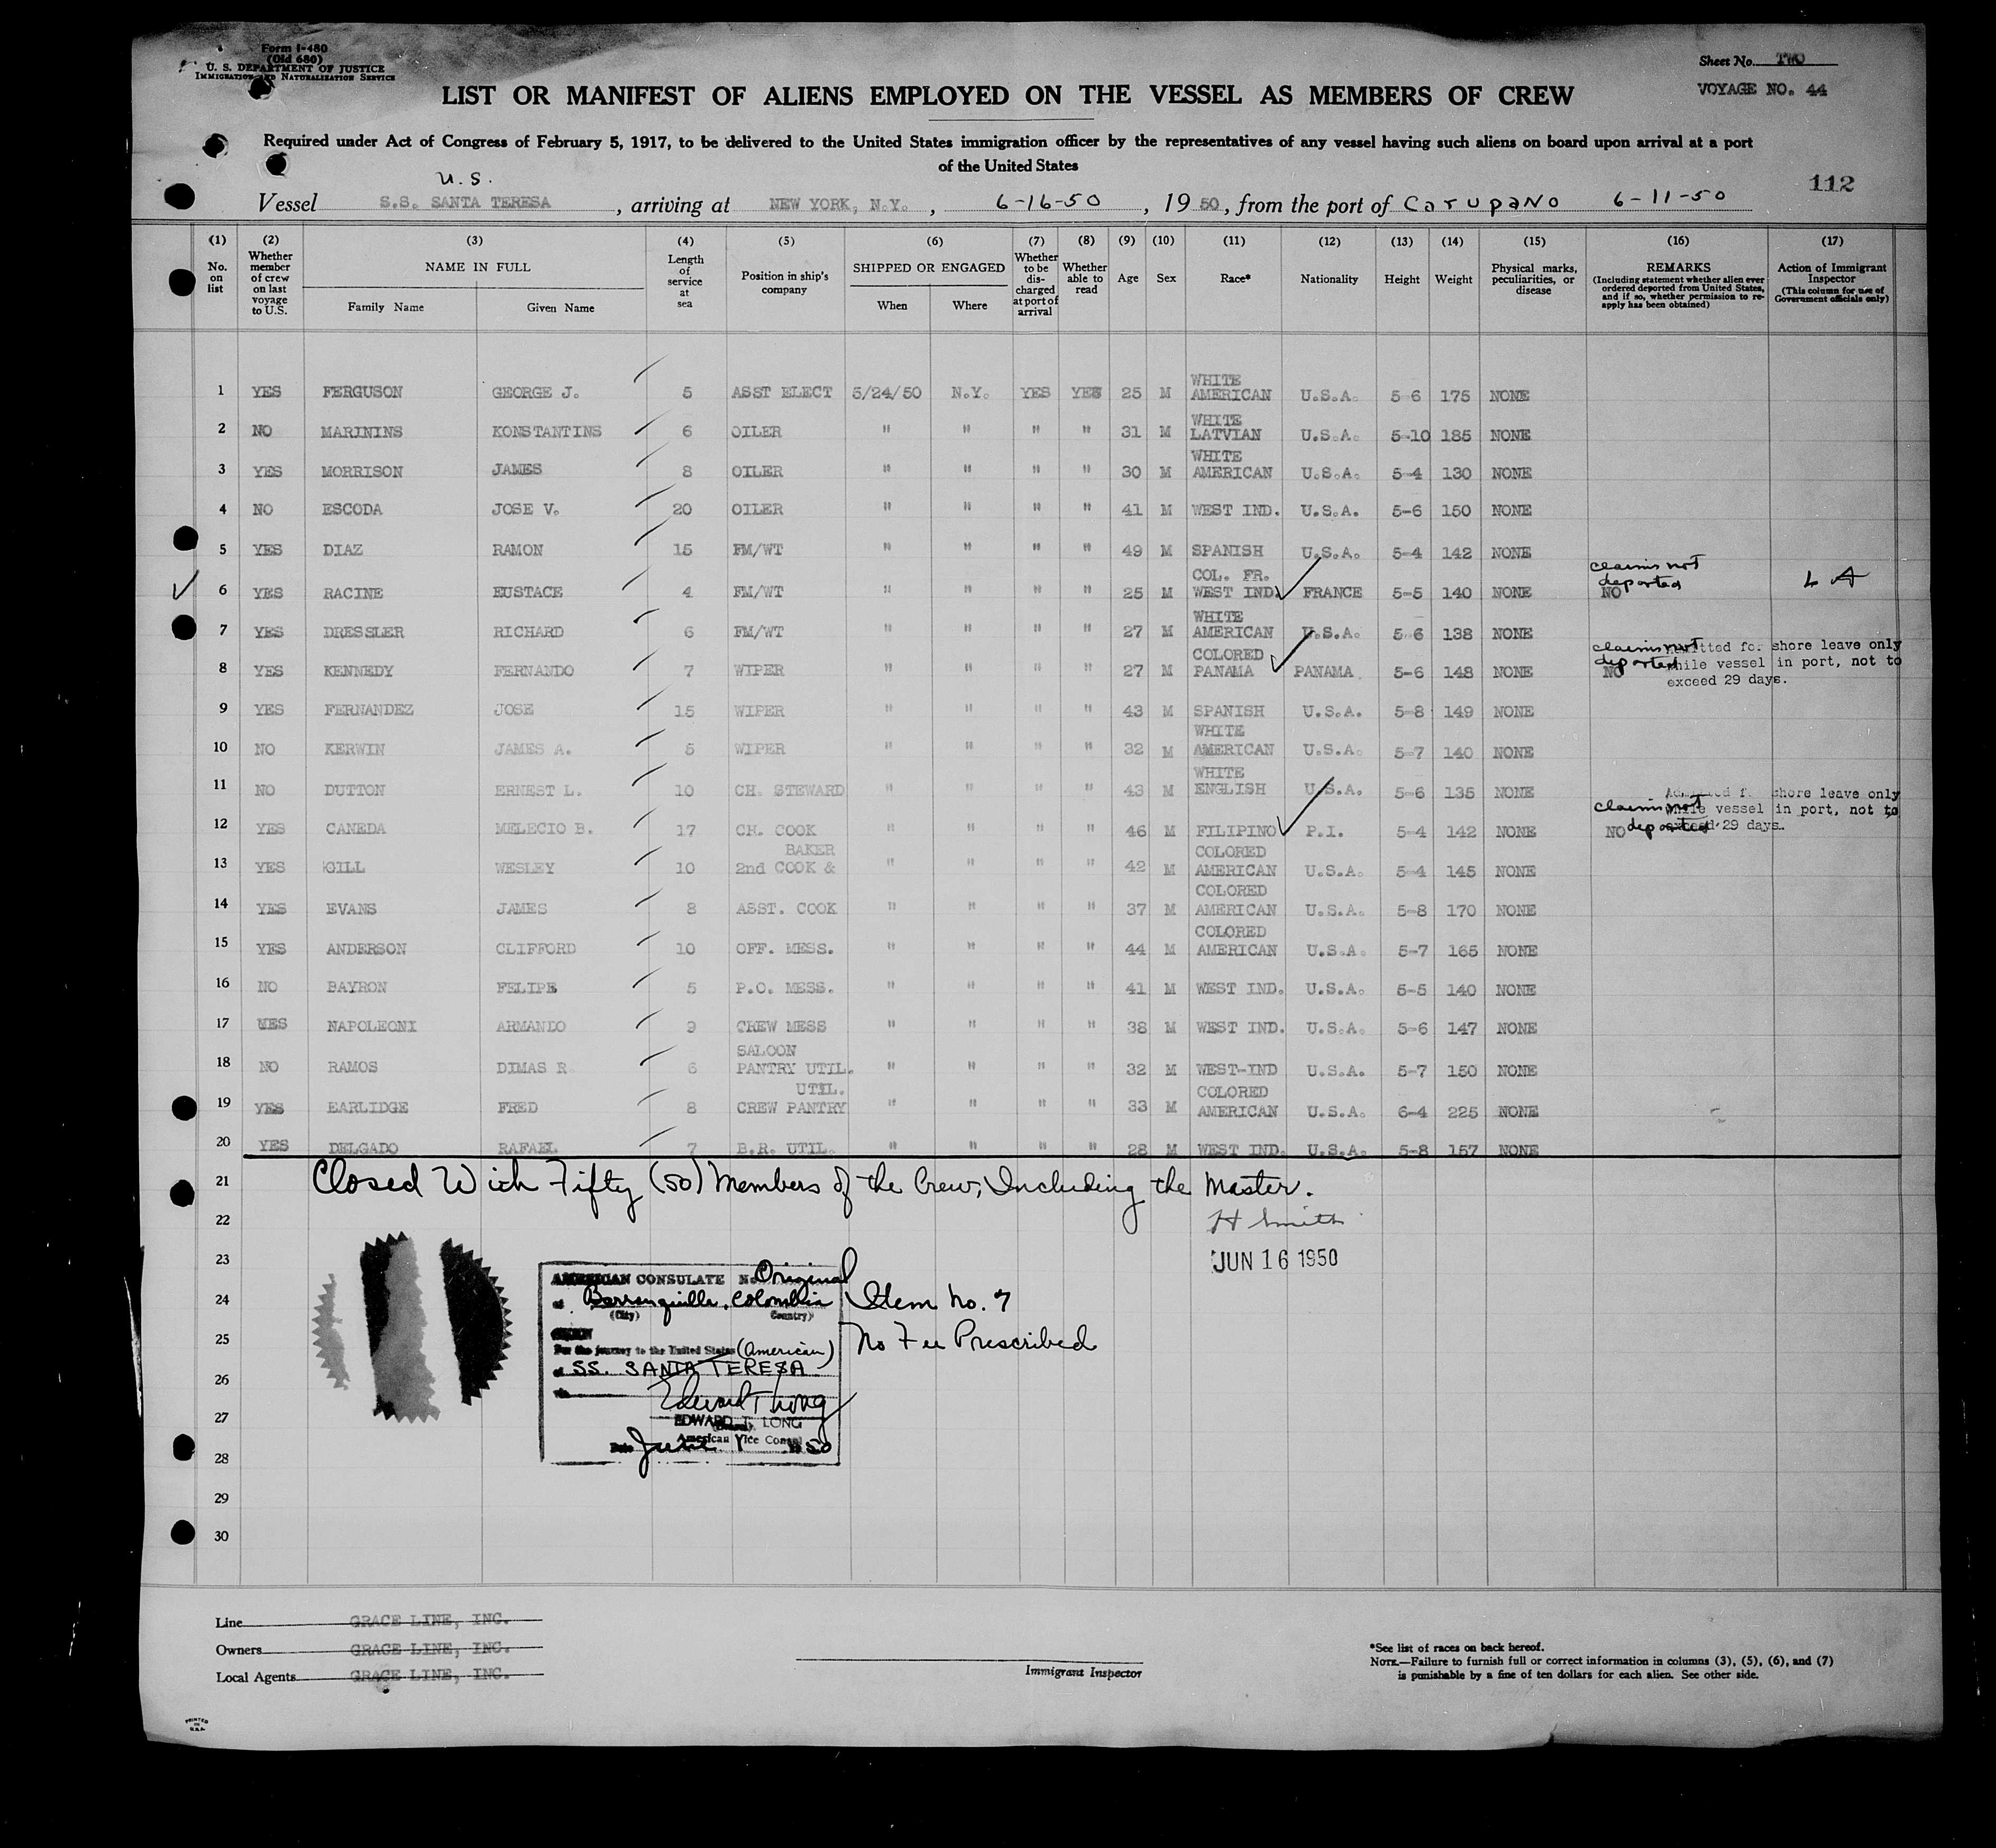 Form I-480
(Old 680)
U. S. DEPARTMENT OF JUSTICE
IMMIGRATION AND NATURALIZATION SERVICE
Sheet No. TWO
VOYAGE NO. 44
LIST OR MANIFEST OF ALIENS EMPLOYED ON THE VESSEL AS MEMBERS OF CREW
Required under Act of Congress of February 5, 1917, to be delivered to the United States immigration officer by the representatives of any vessel having such aliens on board upon arrival at a port
of the United States
112
U.S.
Vessel S.S. SANTA TERESA, arriving at NEW YORK, N.Y., 6-16-50, 1950, from the port of Carupano 6-11-50
(1) No. on list
(2) Whether member of crew on last voyage to U.S.
(3) NAME IN FULL Family Name Given Name
(4) Length of service at sea
(5) Position in ship's company
(6) SHIPPED OR ENGAGED When Where
(7) Whether to be discharged at port of arrival
(8) Whether able to read
(9) Age
(10) Sex
(11) Race*
(12) Nationality
(13) Height
(14) Weight
(15) Physical marks, peculiarities, or disease
(16) REMARKS (Including statement whether alien ever ordered deported from United States, and if so, whether permission to re-apply has been obtained)
(17) Action of Immigrant Inspector (This column for use of Government officials only)
1 YES FERGUSON GEORGE J. 5 ASST ELECT 5/24/50 N.Y. YES YES 25 M WHITE AMERICAN U.S.A. 5-6 175 NONE
2 NO MARININS KONSTANTINS 6 OILER " " " " 31 M WHITE LATVIAN U.S.A. 5-10 185 NONE
3 YES MORRISON JAMES 8 OILER " " " " 30 M WHITE AMERICAN U.S.A. 5-4 130 NONE
4 NO ESCODA JOSE V. 20 OILER " " " " 41 M WEST IND. U.S.A. 5-6 150 NONE
5 YES DIAZ RAMON 15 FM/WT " " " " 49 M SPANISH U.S.A. 5-4 142 NONE
6 YES RACINE EUSTACE 4 FM/WT " " " " 25 M COL. FR. WEST IND. FRANCE 5-5 140 NONE NO claims not deported L A
7 YES DRESSLER RICHARD 6 FM/WT " " " " 27 M WHITE AMERICAN U.S.A. 5-6 138 NONE
8 YES KENNEDY FERNANDO 7 WIPER " " " " 27 M COLORED PANAMA PANAMA 5-6 148 NONE NO claims not deported Admitted for shore leave only while vessel in port, not to exceed 29 days.
9 YES FERNANDEZ JOSE 15 WIPER " " " " 43 M SPANISH U.S.A. 5-8 149 NONE
10 NO KERWIN JAMES A. 5 WIPER " " " " 32 M WHITE AMERICAN U.S.A. 5-7 140 NONE
11 NO DUTTON ERNEST L. 10 CH. STEWARD " " " " 43 M WHITE ENGLISH U.S.A. 5-6 135 NONE
12 YES CANEDA MELECIO B. 17 CH. COOK " " " " 46 M FILIPINO P.I. 5-4 142 NONE NO claims not deported Admitted for shore leave only while vessel in port, not to exceed 29 days.
13 YES GILL WESLEY 10 2nd COOK & BAKER " " " " 42 M COLORED AMERICAN U.S.A. 5-4 145 NONE
14 YES EVANS JAMES 8 ASST. COOK " " " " 37 M COLORED AMERICAN U.S.A. 5-8 170 NONE
15 YES ANDERSON CLIFFORD 10 OFF. MESS. " " " " 44 M COLORED AMERICAN U.S.A. 5-7 165 NONE
16 NO BAYRON FELIPE 5 P.O. MESS. " " " " 41 M WEST IND. U.S.A. 5-5 140 NONE
17 YES NAPOLEONI ARMANDO 9 CREW MESS " " " " 38 M WEST IND. U.S.A. 5-6 147 NONE
18 NO RAMOS DIMAS R. 6 SALOON PANTRY UTIL. " " " " 32 M WEST-IND U.S.A. 5-7 150 NONE
19 YES EARLIDGE FRED 8 CREW PANTRY UTIL. " " " " 33 M COLORED AMERICAN U.S.A. 6-4 225 NONE
20 YES DELGADO RAFAEL 7 B.R. UTIL. " " " " 28 M WEST IND. U.S.A. 5-8 157 NONE
21 Closed With Fifty (50) Members of the Crew, Including the Master.
22 H Smith
23 JUN 16 1950
24
25
26
27
28
29
30
AMERICAN CONSULATE No. Original
at Barranquilla, Colombia
(City) (Country)
For the journey to the United States (American)
SS. SANTA TERESA
Edward T Long
EDWARD T. LONG
American Vice Consul
Date June 1950
Item No. 7
No Fee Prescribed
Line GRACE LINE, INC.
Owners GRACE LINE, INC.
Local Agents GRACE LINE, INC.
Immigrant Inspector
*See list of races on back hereof.
NOTE.—Failure to furnish full or correct information in columns (3), (5), (6), and (7)
is punishable by a fine of ten dollars for each alien. See other side.
PRINTED IN U.S.A.